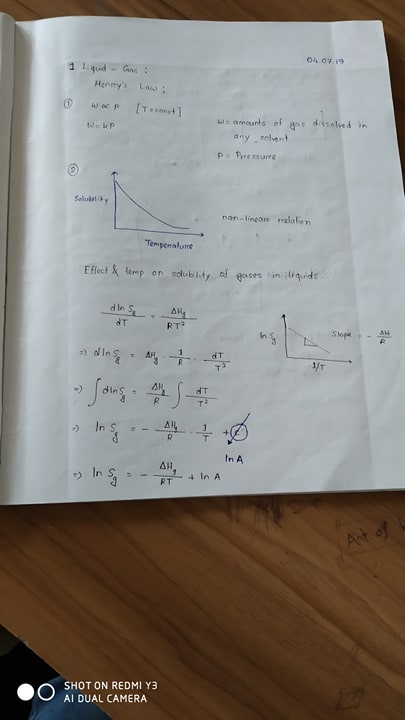 04.07.19
1 Liquid - Gas :
Henry's Law :
① w ∝ P [T = const]
w = kP
w = amounts of gas dissolved in
any solvent
P = Pressure
②
Solubility
Temperature
non-linear relation
Effect & temp on solubility of gases in liquids
d ln Sg / dT = ΔHg / RT²
=) d ln Sg = ΔHg · 1/R · dT/T²
=) ∫ d ln Sg = ΔHg/R ∫ dT/T²
=) ln Sg = - ΔHg/R · 1/T + C
ln A
=) ln Sg = - ΔHg/RT + ln A
ln Sg
Slope = - ΔH/R
1/T
SHOT ON REDMI Y3
AI DUAL CAMERA